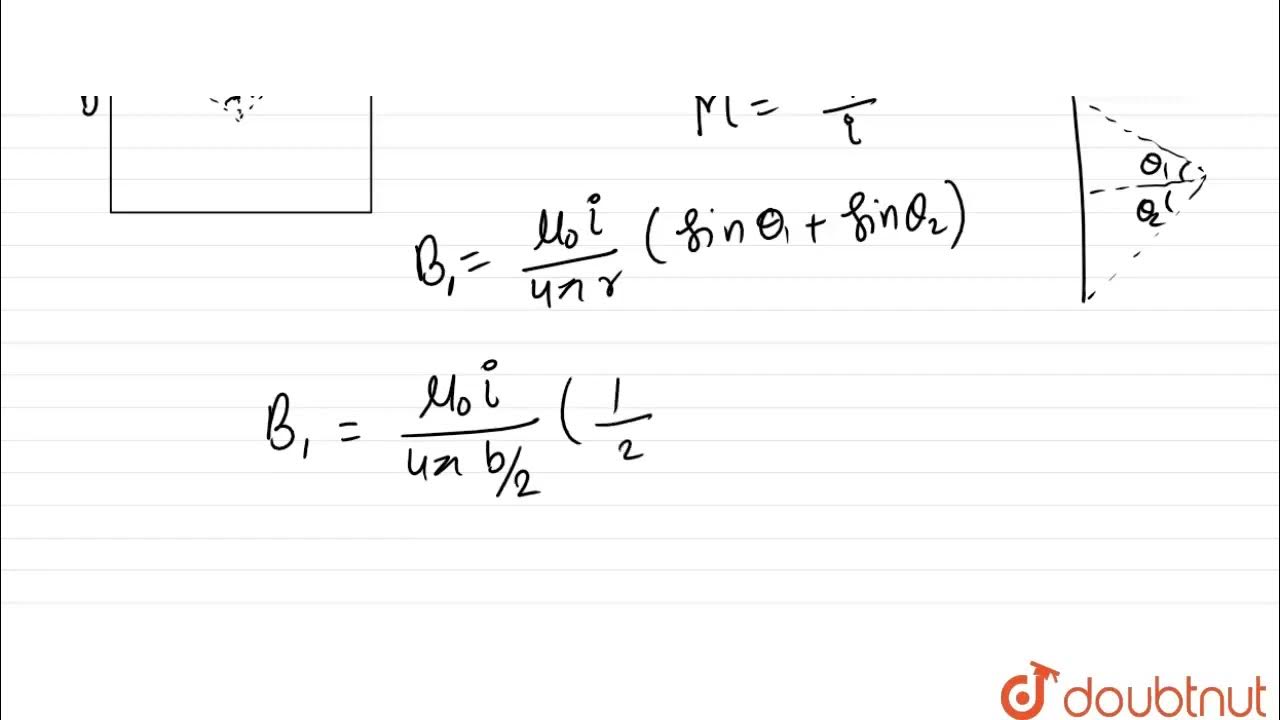 M = / i
B₁ = μ₀ i / 4π r ( sin θ₁ + sin θ₂ )
θ₁
θ₂
B₁ = μ₀ i / 4π b/2 ( 1 / 2
doubtnut